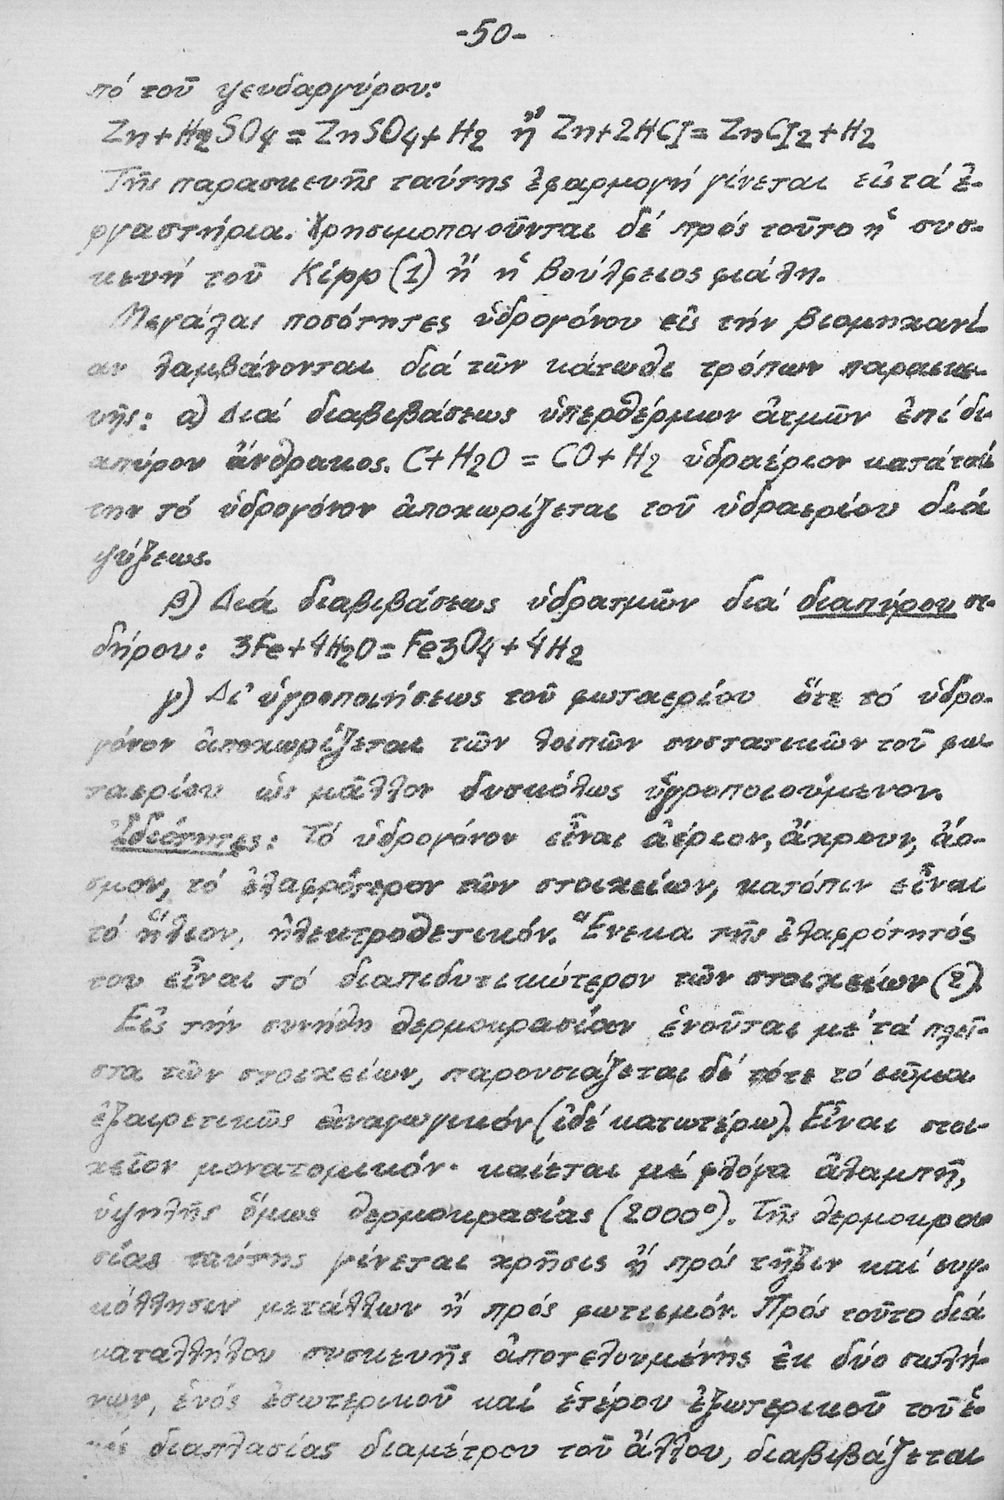 -50-
πό τοῦ ψευδαργύρου:
Zn+H2SO4=ZnSO4+H2 ἤ Zn+2HCl=ZnCl2+H2
Τῆς παρασκευῆς ταύτης ἐφαρμογή γίνεται εἰς τά ἐ-
ργαστήρια. Χρησιμοποιοῦνται δέ πρός τοῦτο ἡ συσ-
κευή τοῦ Κίρρ (1) ἤ ἡ βούλφειος φιάλη.
Μεγάλαι ποσότητες ὑδρογόνου εἰς τήν βιομηχανί-
αν λαμβάνονται διά τῶν κάτωθι τρόπων παρασκε-
υῆς: α) Διά διαβιβάσεως ὑπερθέρμων ἀτμῶν ἐπί δι-
απύρου ἄνθρακος. C+H2O = CO+H2 ὑδραέριον κατά ταύ
την τό ὑδρογόνον ἀποχωρίζεται τοῦ ὑδραερίου διά
ψύξεως.
β) Διά διαβιβάσεως ὑδρατμῶν διά διαπύρου σι-
δήρου: 3Fe+4H2O=Fe3O4+4H2
γ) Δι' ὑγροποιήσεως τοῦ φωταερίου ὅτε τό ὑδρο-
γόνον ἀποχωρίζεται τῶν λοιπῶν συστατικῶν τοῦ φω-
ταερίου ὡς μᾶλλον δυσκόλως ὑγροποιούμενον.
Ἰδιότητες: Τό ὑδρογόνον εἶναι ἀέριον, ἄχρουν, ἄο-
σμον, τό ἐλαφρότερον τῶν στοιχείων, κατόπιν εἶναι
τό ἥλιον, ἠλεκτροθετικόν. Ἕνεκα τῆς ἐλαφρότητός
του εἶναι τό διαπιδυτικώτερον τῶν στοιχείων (2).
Εἰς τήν συνήθη θερμοκρασίαν ἑνοῦται μέ τά πλεῖ-
στα τῶν στοιχείων, παρουσιάζεται δέ τότε τό σῶμα
ἐξαιρετικῶς ἀναγωγικόν (ἰδέ κατωτέρω). Εἶναι στοι-
χεῖον μονατομικόν· καίεται μέ φλόγα ἀλαμπῆ,
ὑψηλῆς ὅμως θερμοκρασίας (2000°). Τῆς θερμοκρα-
σίας ταύτης γίνεται χρῆσις ἤ πρός τῆξιν καί συγ-
κόλλησιν μετάλλων ἤ πρός φωτισμόν. Πρός τοῦτο διά
καταλλήλου συσκευῆς ἀποτελουμένης ἐκ δύο σωλή-
νων, ἑνός ἐσωτερικοῦ καί ἑτέρου ἐξωτερικοῦ τοῦ ἑ-
νός διαπλασίας διαμέτρου τοῦ ἄλλου, διαβιβάζεται